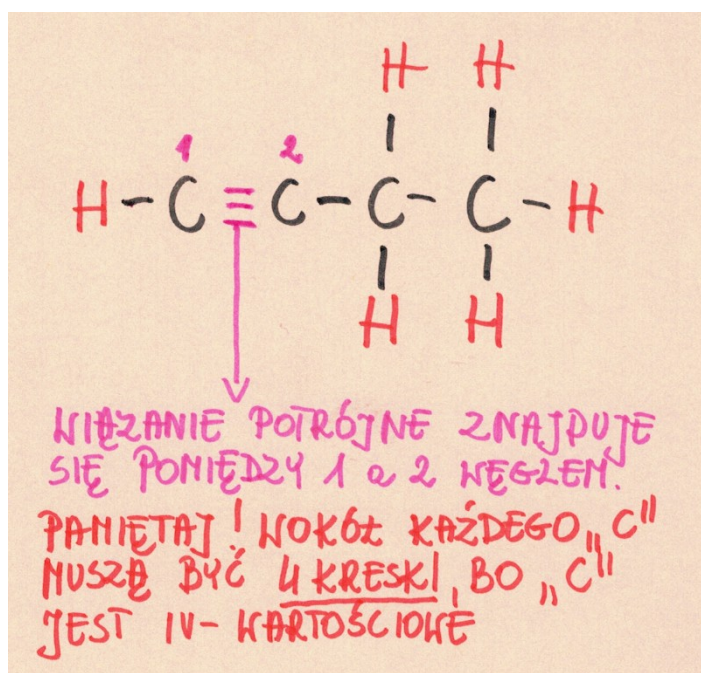 H H
1 2
H-C≡C-C-C-H
H H
WIĄZANIE POTRÓJNE ZNAJDUJE
SIĘ POMIĘDZY 1 a 2 WĘGLEM.
PAMIĘTAJ! WOKÓŁ KAŻDEGO „C"
MUSZĄ BYĆ 4 KRESKI, BO „C"
JEST IV-WARTOŚCIOWE